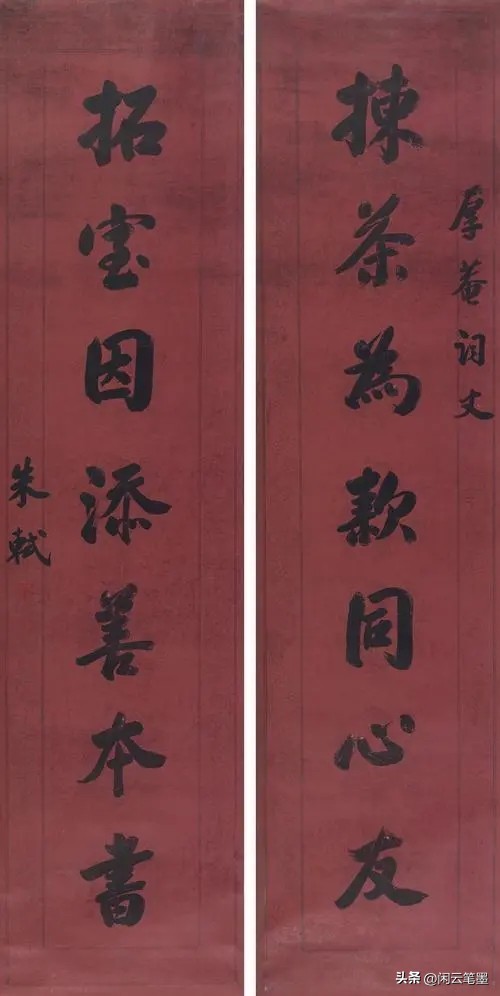 厚菴词丈
揀茶為款同心友
拓室因添善本書
朱軾
头条 @闲云笔墨